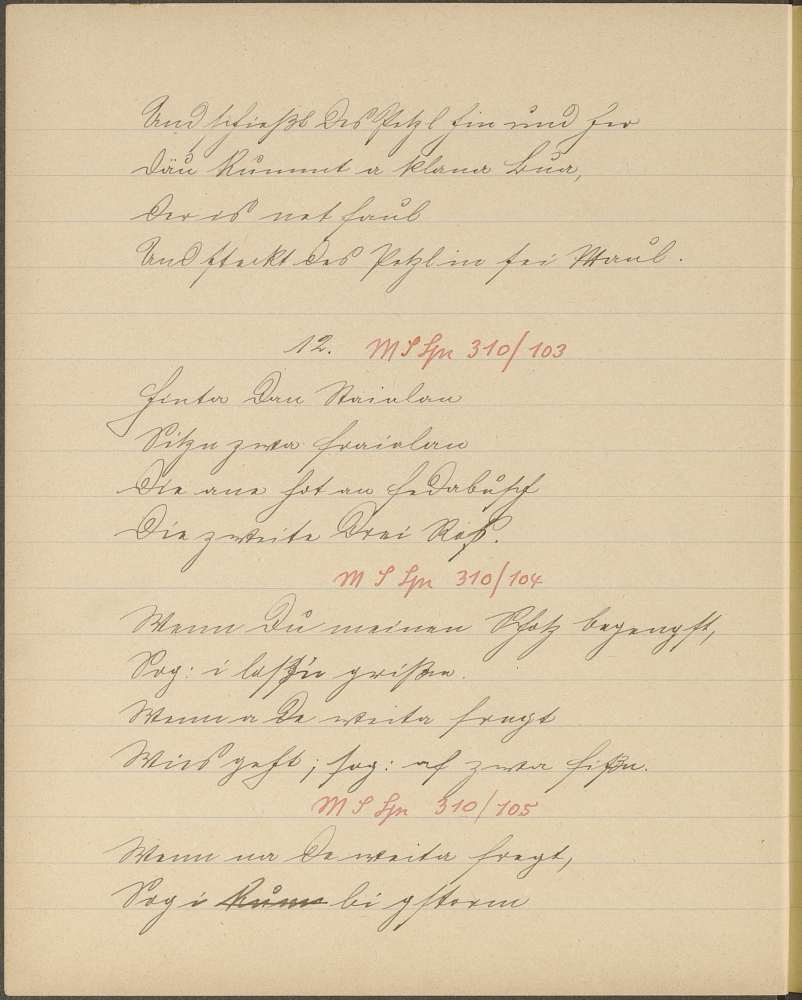 Und schießt des Petzl hin und her
Däu kummt a klaner Bua,
Der is net faul
Und steckt des Petzl in sei Maul.
12. M S Spr 310/103
Hinta Dan Staiolan
Sitzn zwa Fraiolan
Die ane hot an Fedabusch
Die zweite Drei Ros.
M S Spr 310/104
Wenn Du meinen Schotz begengst,
Sog: i loß'n grißen.
Wenn a De weita fragt
Wies geht; sog: af zwa Fißn.
M S Spr 310/105
Wenn na De weita fregt,
Sog i kumm bi gstorm